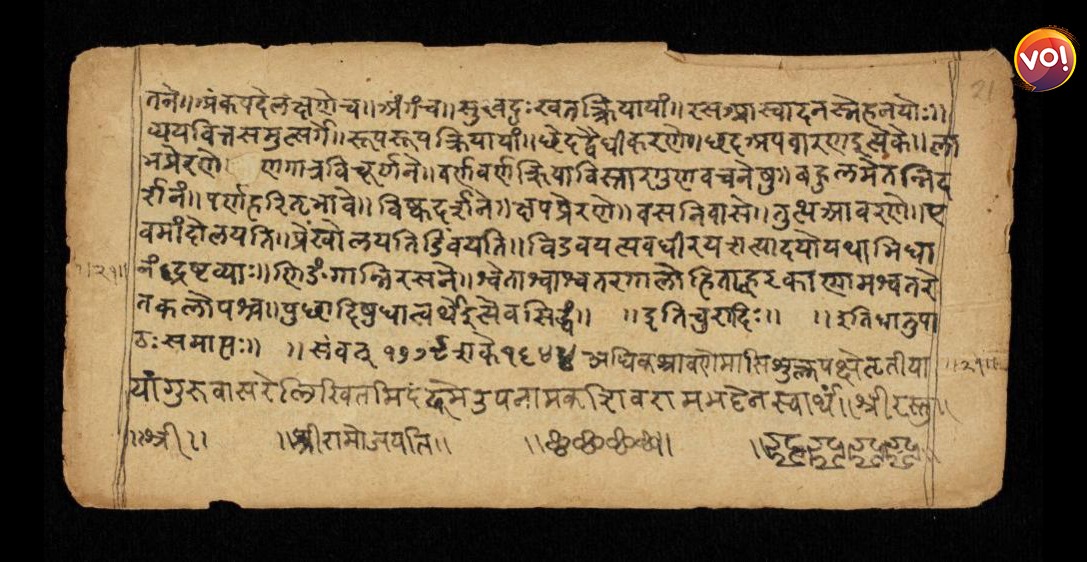 तने॥अंकपदेलक्षणेच॥अंगंच॥सुखदुःखतत्क्रियायां॥रसआस्वादनस्नेहनयोः॥
व्ययवित्तसमुत्सर्गे॥रूपरूपक्रियायां॥छेदद्वैधीकरणे॥छदअपवारणइत्येके॥ला
भप्रेरणे व्रणगात्रविचूर्णने॥वर्णवर्णक्रियाविस्तारगुणवचनेषु॥बहुलमेतन्निद
र्शनं॥पर्णहरितभावे॥विष्कदर्शने॥क्षपप्रेरणे॥वसनिवासे॥तुत्थआवरणे॥ए
वमांदोलयति॥प्रेंखोलयति
नंद्रष्टव्याः॥णिङंगान्निरसने॥श्वेताश्वाश्वतरगालोडिताह्वरकाणामश्वतरे
तकलोपश्च॥पुछादिषुधात्वर्थइत्येवसिद्धं॥ ॥इतिचुरादिः॥ ॥इतिधातुपा
ठः समाप्तः॥ ॥संवत् शके अधिकश्रावणेमासिशुक्लपक्षेतृतीया
यांगुरुवासरेलिखितमिदं उपनामक स्वार्थं॥श्रीरस्तु॥
॥श्री॥ ॥श्रीरामोजयति॥
॥२१॥
॥२१॥
21
VO!